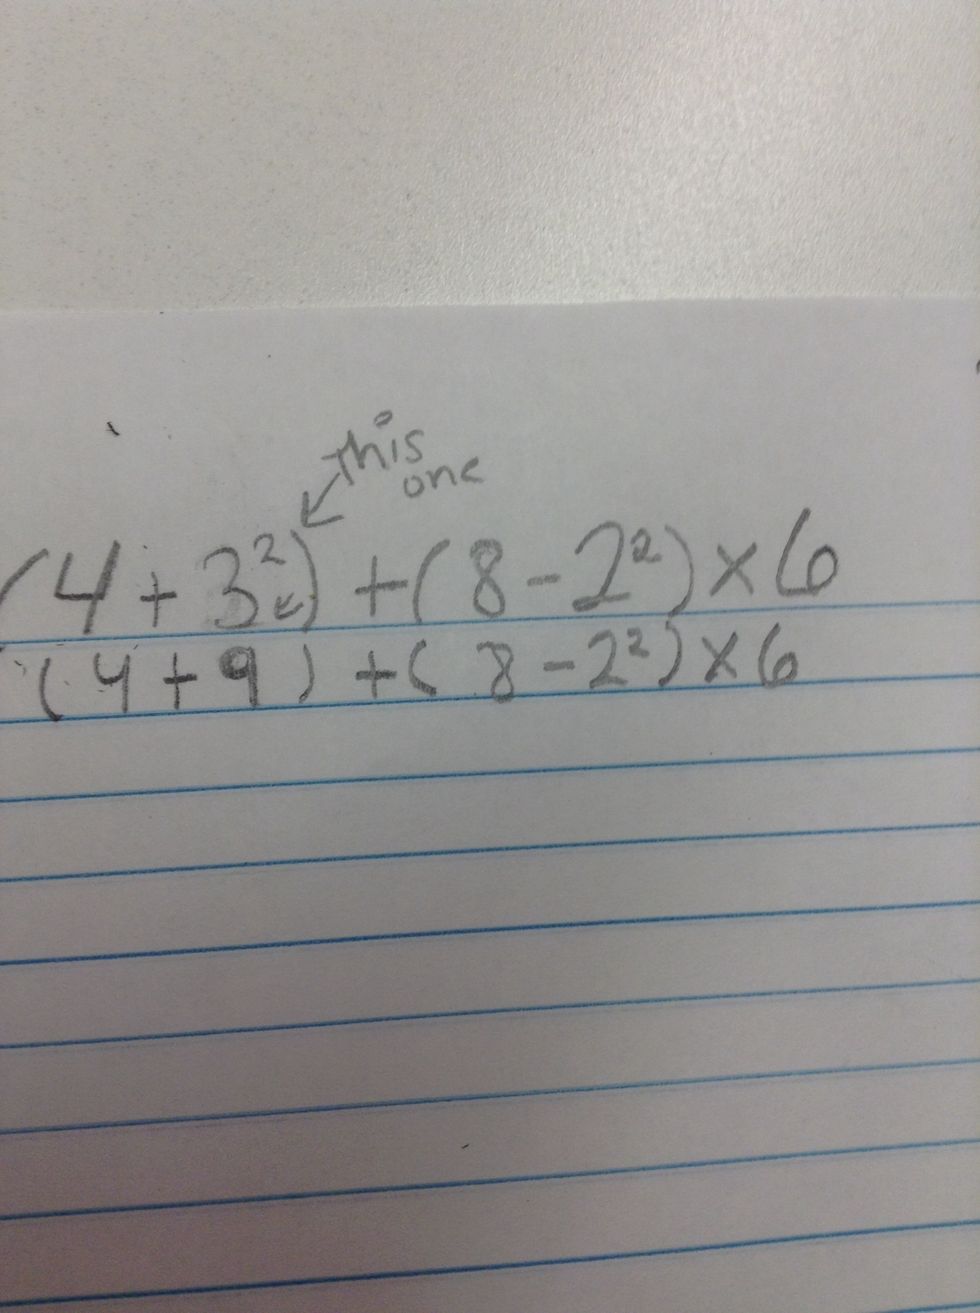 this
one
(4+3²)+(8-2²)×6
(4+9)+(8-2²)×6